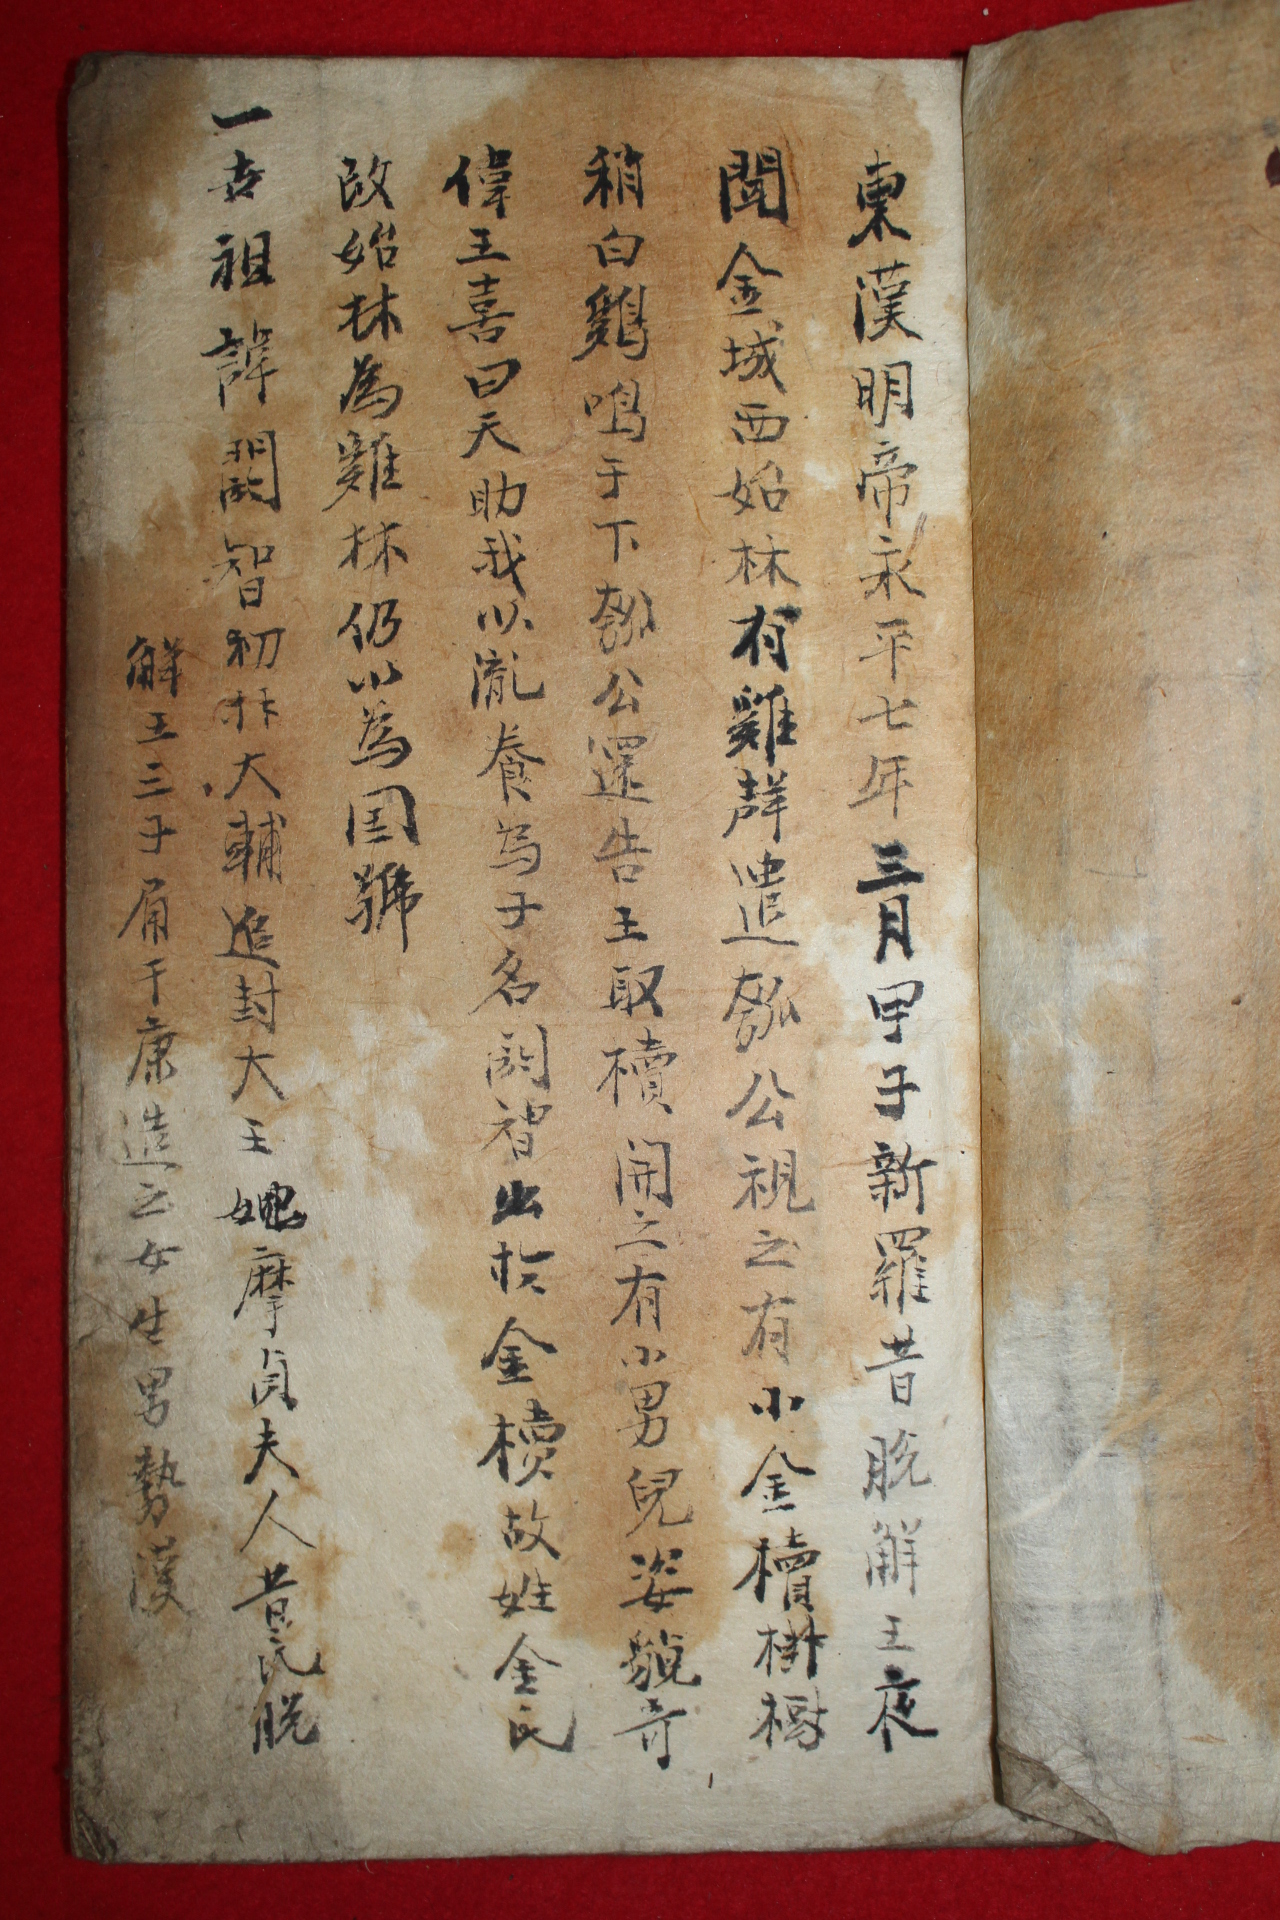 東漢明帝永平七年三月甲子新羅昔脫解王夜
聞金城西始林有雞聲遣瓠公視之有小金櫝掛樹
稍白鷄鳴于下瓠公還告王取櫝開之有小男兒姿貌奇
偉王喜曰天助我以胤養為子名閼智出於金櫝故姓金氏
改始林為雞林仍以為国號
一世祖諱閼智初拜大輔追封大王媲摩貞夫人昔氏脫
解王三子角干康造之女生男勢漢